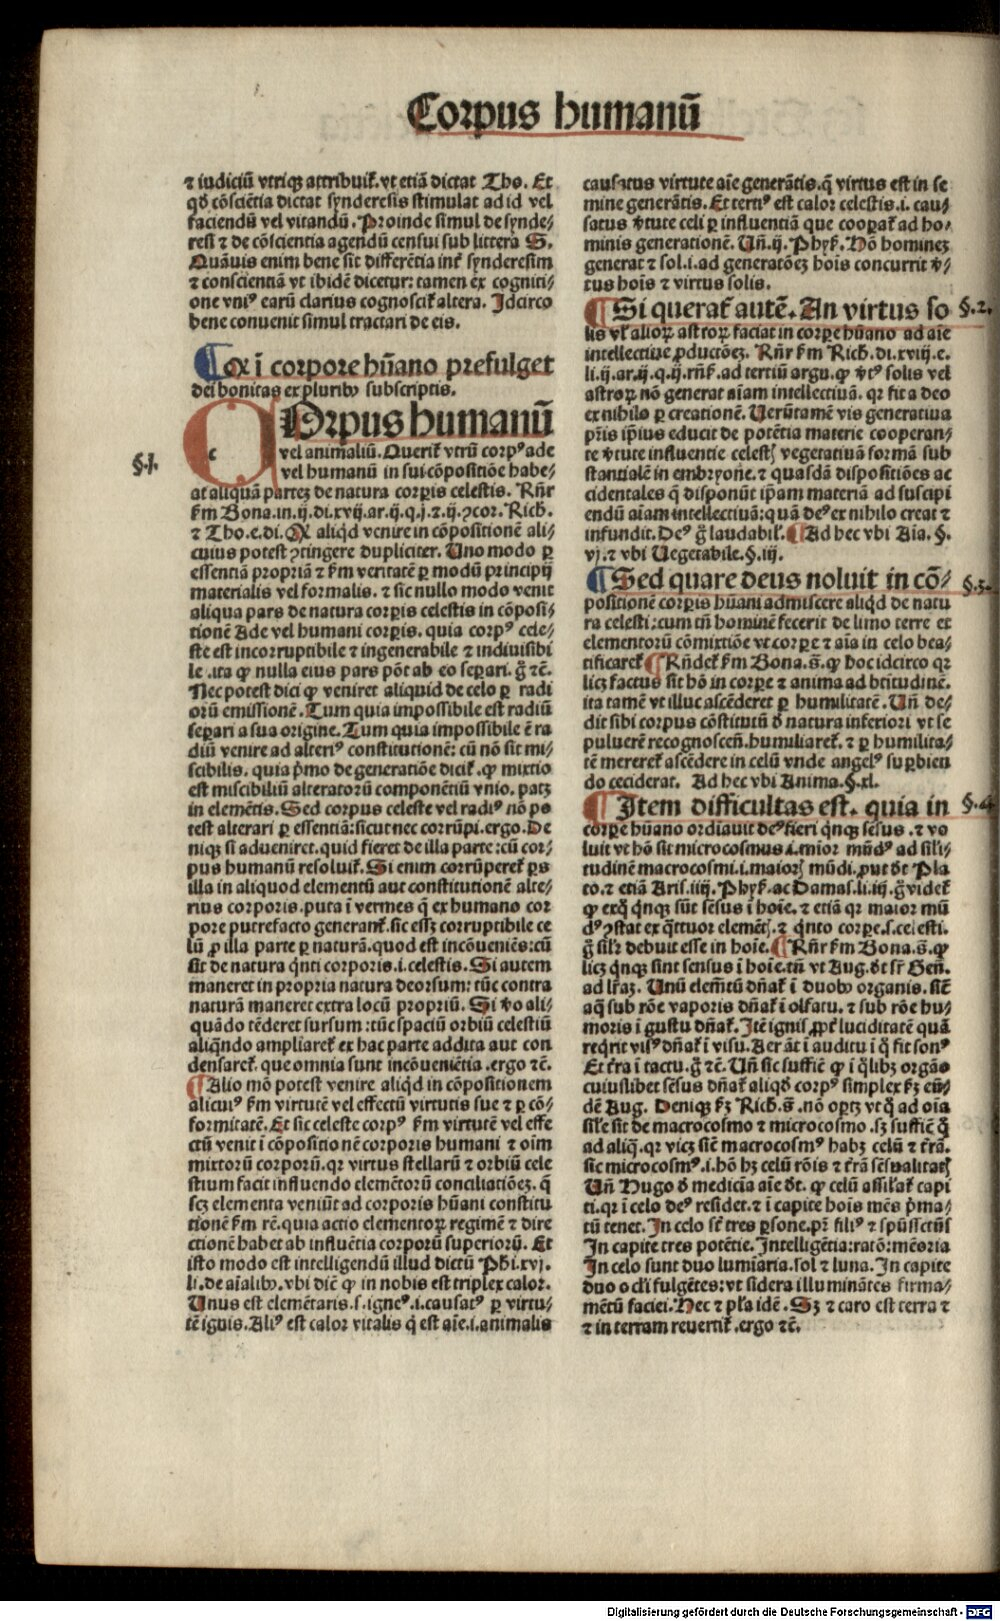 Corpus humanū
⁊ iudiciū vtriqꝫ attribuit᷑. vt etiā dictat Tho. Et
qd̓ cōsciētia dictat synderesis stimulat ad id vel
faciendū vel vitandū. Proinde simul de synde⸗
resi ⁊ de cōscientia agendū censui sub littera S.
Quāuis enim bene sit differētia int᷑ synderesim
⁊ conscientiā vt ibidē dicetur: tamen ex cogniti⸗
one vniꝰ earū clarius cognoscit᷑ altera. Idcirco
bene convenit simul tractari de eis.
¶ Qꝙ ī corpore hūano prefulget
dei bonitas ex pluribꝰ subscriptis.
c
ORpus humanū
vel animaliū. Querit᷑ vtrū corpꝰ ade
vel humanū in sui cōpositiōe habe⸗
§.j.
at aliquā partez de natura corꝑis celestis. Rn̄r
ẜm Bona. in. ij. di. xvij. ar. ij. q. j. ⁊. ij. ꝯcor. Rich.
⁊ Tho. e. di. Qꝙ aliqd̓ venire in cōpositionē ali⸗
cuius potest ꝯtingere dupliciter. Uno modo ꝑ
essentiā propriā ⁊ ẜm veritatē ꝑ modū principij
materialis vel formalis. ⁊ sic nullo modo venit
aliqua pars de natura corꝑis celestis in cōposi⸗
tionē Ade vel humani corꝑis. quia corpꝰ cele⸗
ste est incorruptibile ⁊ ingenerabile ⁊ indiuisibi
le. ita ꝙ nulla eius pars pōt ab eo seꝑari. g̊ ⁊c̄.
Nec potest dici ꝙ veniret aliquid de celo ꝑ radi
orū emissionē. Tum quia impossibile est radiū
seꝑari a sua origine. Tum quia impossibile ē ra
diū venire ad alteriꝰ constitutionē: cū nō sit mi⸗
scibilis. quia pͥmo de generatiōe dicit᷑. ꝙ mixtio
est miscibiliū alteratorū componentiū vnio. patꝫ
in elemētis. Sed corpus celeste vel radiꝰ nō po
test alterari ꝑ essentiā: sicut nec corrūpi. ergo. De
niqꝫ si adveniret. quid fieret de illa parte: cū cor⸗
pus humanū resoluit᷑. Si enim corrūperet᷑ ꝑs
illa in aliquod elementū aut constitutionē alte⸗
rius corporis. puta ī vermes q̄ ex humano cor
pore putrefacto generant᷑. sic essꝫ corruptibile ce
lū ꝓ illa parte ꝑ naturā. quod est incōueniēs: cū
sit de natura qͥnti corporis. i. celestis. Si autem
maneret in propria natura deorsum: tūc contra
naturā maneret extra locū propriū. Si v̓o ali⸗
quādo tēderet sursum: tūc spaciū orbiū celestiū
aliqn̄do ampliaret᷑ ex hac parte addita aut con
densaret᷑. que omnia sunt incōueniētia. ergo ⁊c̄.
¶ Alio mō potest venire aliqd̓ in cōpositionem
alicuiꝰ ẜm virtutē vel effectū virtutis sue ⁊ ꝑ cō⸗
formitatē. Et sic celeste corpꝰ ẜm virtutē vel effe
ctū venit ī cōpositionē corporis humani ⁊ oīm
mixtorū corporū. qr virtus stellarū ⁊ orbiū cele
stium facit influendo elemētorū conciliatiōez. q̄
scꝫ elementa veniūt ad corporis hūani constitu
tionē ẜm rē. quia actio elementoꝝ regimē ⁊ dire
ctionē habet ab influētia corporū superiorū. Et
isto modo est intelligendū illud dictū Phi. xvj.
li. de aīalibꝰ. vbi dic̄ ꝙ in nobis est triplex calor.
Unus est elemētaris. s. igneꝰ. i. causatꝰ ꝑ virtu⸗
tē ignis. Aliꝰ est calor vitalis q̄ est aīe. i. animalis
causatus virtute aīe generātis. q̄ virtus est in se
mine generātis. Et tertiꝰ est calor celestis. i. cau⸗
satus v̓tute celi ꝑ influentiā que cooꝑat᷑ ad ho⸗
minis generationē. Un̄. ij. Phys̄. Hō hominez
generat ⁊ sol. i. ad generatōez hoīs concurrit v̓⸗
tus hoīs ⁊ virtus solis.
¶ Si querat᷑ autē. An virtus so
§.2.
lis vl̓ alioꝝ astroꝝ faciat in corꝑe hūano ad aīe
intellectiue ꝓductōez. Rn̄r ẜm Rich. di. xviij. e.
li. ij. ar. ij. q. ij. rn̄s̄. ad tertiū argu. ꝙ v̓tꝰ solis vel
astroꝝ nō generat aīam intellectiuā. qr fit a deo
ex nihilo ꝑ creationē. Uerūtamē vis generatiua
pr̄is ip̄ius educit de potētia materie cooperan⸗
te v̓tute influentie celestꝭ vegetatiuā formā sub
stantialē in embryone. ⁊ quasdā dispositiōes ac
cidentales q̄ disponūt ip̄am materiā ad suscipi
endū aīam intellectiuā: quā deꝰ ex nihilo creat ⁊
infundit. Deꝰ g̊ laudabil̓. ¶ Ad hec vbi Aīa. §.
vj. ⁊ vbi Uegetabile. §. iij.
¶ Sed quare deus noluit in cō⸗
§.3.
positionē corꝑis hūani admiscere aliqd̓ de natu
ra celesti: cum tn̄ hominē fecerit de limo terre et
elementorū cōmixtiōe vt corꝑe ⁊ aīa in celo bea⸗
tificaret᷑. ¶ Rn̄det᷑ ẜm Bona. s̄. ꝙ hoc idcirco qr
licꝫ factus sit hō in corꝑe ⁊ anima ad btītudinē.
ita tamē vt illuc ascēderet ꝑ humilitatē. Un̄ de⸗
dit sibi corpus cōstitutū d̓ natura inferiori vt se
puluerē recognoscen̄. humiliaret᷑. ⁊ ꝑ humilita⸗
tē mereret᷑ ascēdere in celū vnde angelꝰ suꝑbien
do ceciderat. Ad hec vbi Anima. §. xl.
¶ Item difficultas est. quia in
§.4
corꝑe hūano ordīauit deꝰ fieri qͥnqꝫ sēsus. ⁊ vo
luit vt hō sit microcosmus. i. mīor mūdꝰ ad sil̓i⸗
tudinē macrocosmi. i. maiorꝭ mūdi. ꝓut dt̄ Pla
to. ⁊ etiā Aris. iiij. Phys̄. ac Damas. li. iij. g̊ videt᷑
ꝙ exq̊ qͥnqꝫ sūt sēsus ī hoīe. ⁊ etiā qr maior mū
dꝰ ꝯstat ex qͣttuor elemētꝭ. ⁊ qͥnto corꝑe. s. celesti.
g̊ sil̓r debuit esse in hoīe. ¶ Rn̄r ẜm Bona. s̄. ꝙ
licꝫ qͥnqꝫ sint sensus ī hoīe. tn̄ vt Aug. dt̄ sr̄ Gen̄.
ad lr̄az. Unū elem̄tū dn̄at᷑ ī duobꝰ organis. sic̄
aq̄ sub rōe vaporis dn̄at᷑ ī olfatu. ⁊ sub rōe hu⸗
moris ī gustu dn̄at᷑. Itē ignis ꝓpt̓ luciditatē quā
reqͥrit visꝰ dn̄at᷑ ī visu. Aer āt ī auditu ī q̊ fit sonꝰ
Et t̄ra ī tactu. g̊ ⁊c̄. Un̄ sic suffic̄ ꝙ ī qͥlibꝫ orgāo
cuiuslibet sēsus dn̄at᷑ aliqd̓ corpꝰ simplex ẜꝫ eū⸗
dē Aug. Deniqꝫ ẜꝫ Rich. s̄. nō oportꝫ vt q̊ ad oīa
sil̓e sit de macrocosmo ⁊ microcosmo. sꝫ suffic̄ q̊
ad aliq̄. qr vicꝫ sic̄ macrocosmꝰ habꝫ celū ⁊ t̄rā.
sic microcosmꝰ. i. hō hꝫ celū rōis ⁊ t̄rā sēsualitatꝭ
Un̄ Hugo d̓ medicīa aīe dt̄. ꝙ celū assil̓at᷑ capi
ti. qr ī celo deꝰ residet. ⁊ ī capite hoīs mēs pͥma⸗
tū tenet. In celo sūt tres ꝑsone. pr̄ filiꝰ ⁊ spūssctūs
In capite tres potētie. Intelligētia: ratō: mēoria
In celo sunt duo lumīaria. sol ⁊ luna. In capite
duo ocl̓i fulgētes: vt sidera illuminātes firma⸗
mētū faciei. Hec ⁊ pl̓a idē. Sꝫ ⁊ caro est terra ⁊
⁊ in terram reuertit᷑. ergo ⁊c̄.
Digitalisierung gefördert durch die Deutsche Forschungsgemeinschaft - DFG